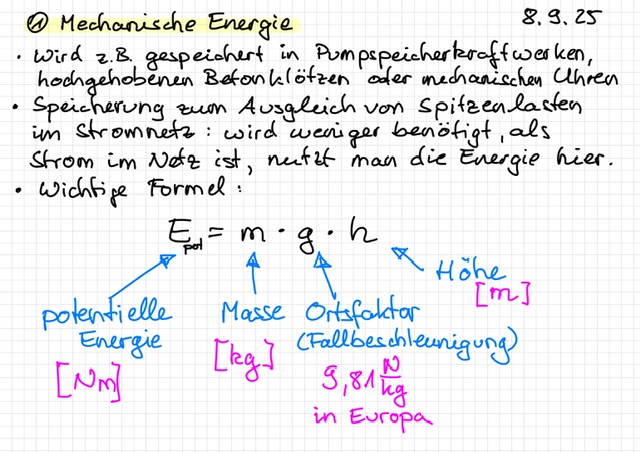 ① Mechanische Energie 8.9.25
• Wird z.B. gespeichert in Pumpspeicherkraftwerken,
hochgehobenen Betonklötzen oder mechanischen Uhren
• Speicherung zum Ausgleich von Spitzenlasten
im Stromnetz: wird weniger benötigt, als
Strom im Netz ist, nutzt man die Energie hier.
• Wichtige Formel:
E_pot = m · g · h
Höhe
[m]
potentielle Masse Ortsfaktor
Energie [kg] (Fallbeschleunigung)
[Nm] 9,81 N/kg
in Europa